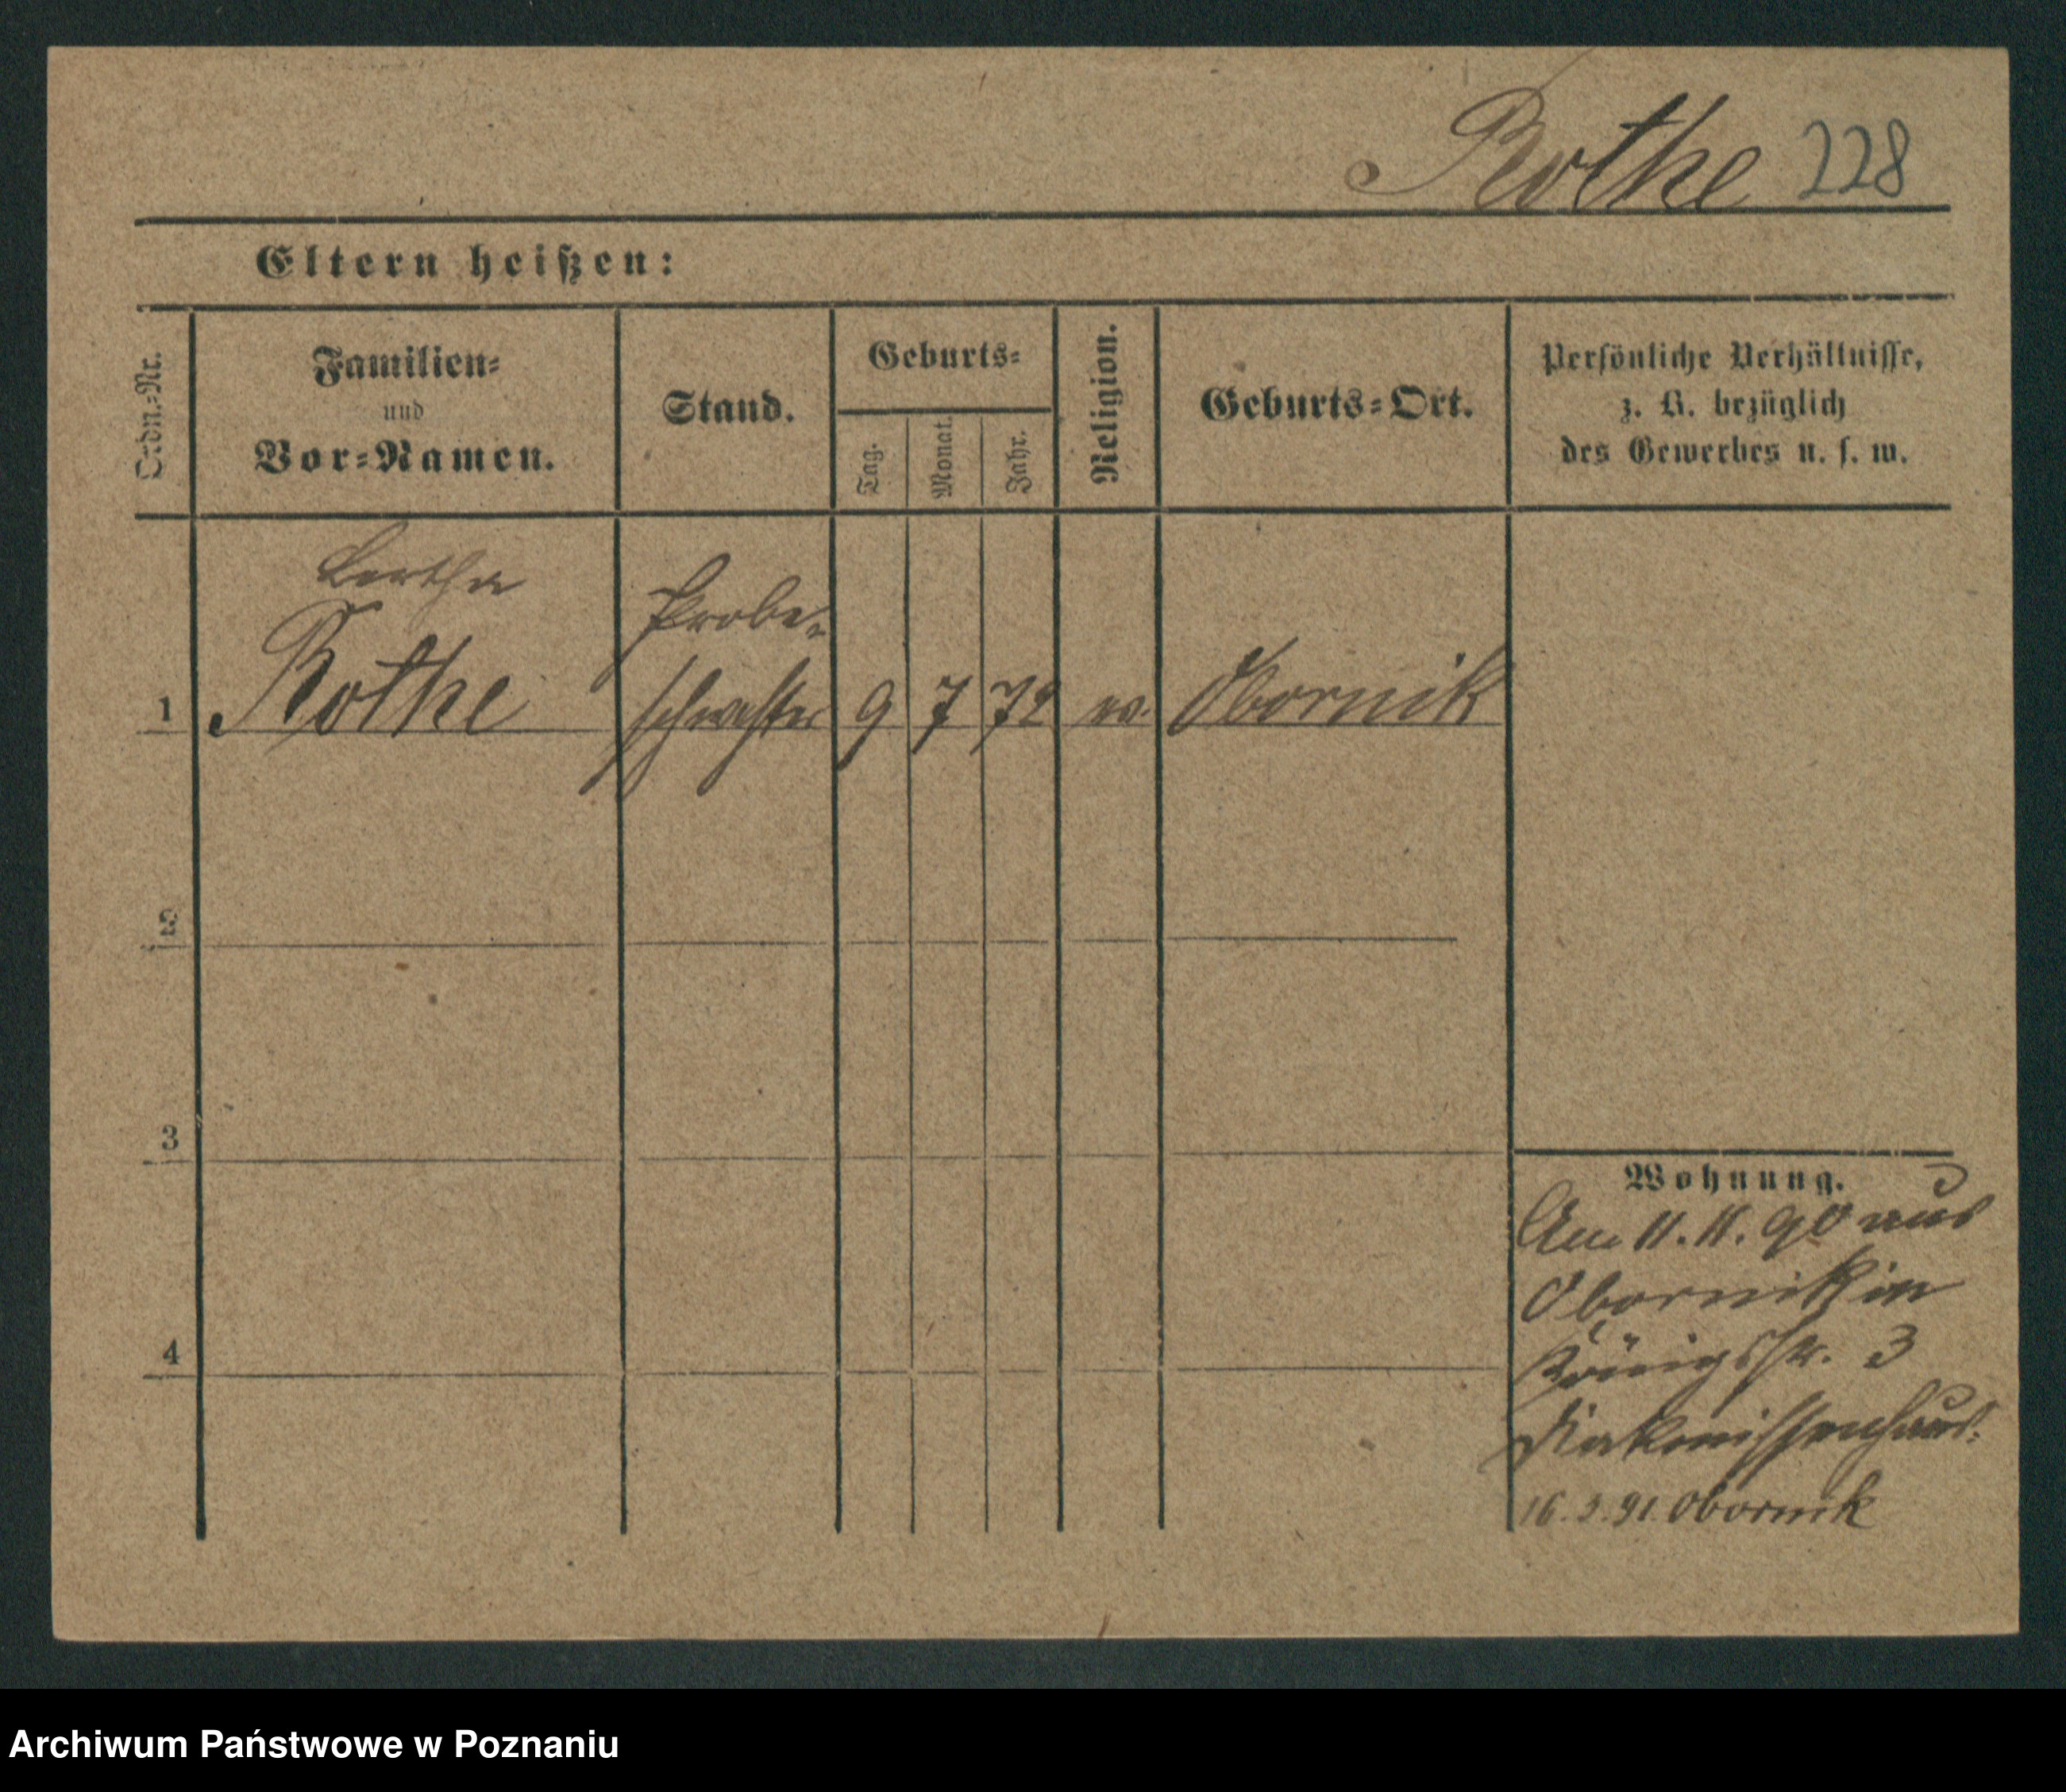 Rothe 228
Eltern heißen:
Ordn.-Nr.
Familien-
und
Vor-Namen.
Stand.
Geburts-
Tag.
Monat.
Jahr.
Religion.
Geburts-Ort.
Persönliche Verhältnisse,
z. B. bezüglich
des Gewerbes u. s. w.
Bertha
Rothe
Probe-
schwester
1
9 7 72 ev. Obornik
2
3
4
Wohnung.
Am 11. 11. 90 aus
Obornik in
Königsstr. 3
Diakonissenhaus.
16. 3. 91. Obornik
Archiwum Państwowe w Poznaniu